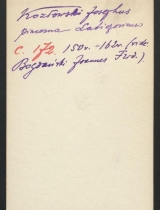 Kozłowski Josephus
pincerna Latizoviensis
C. 172. 150v.-162v. (vide
Bogdański Joannes Fred.)